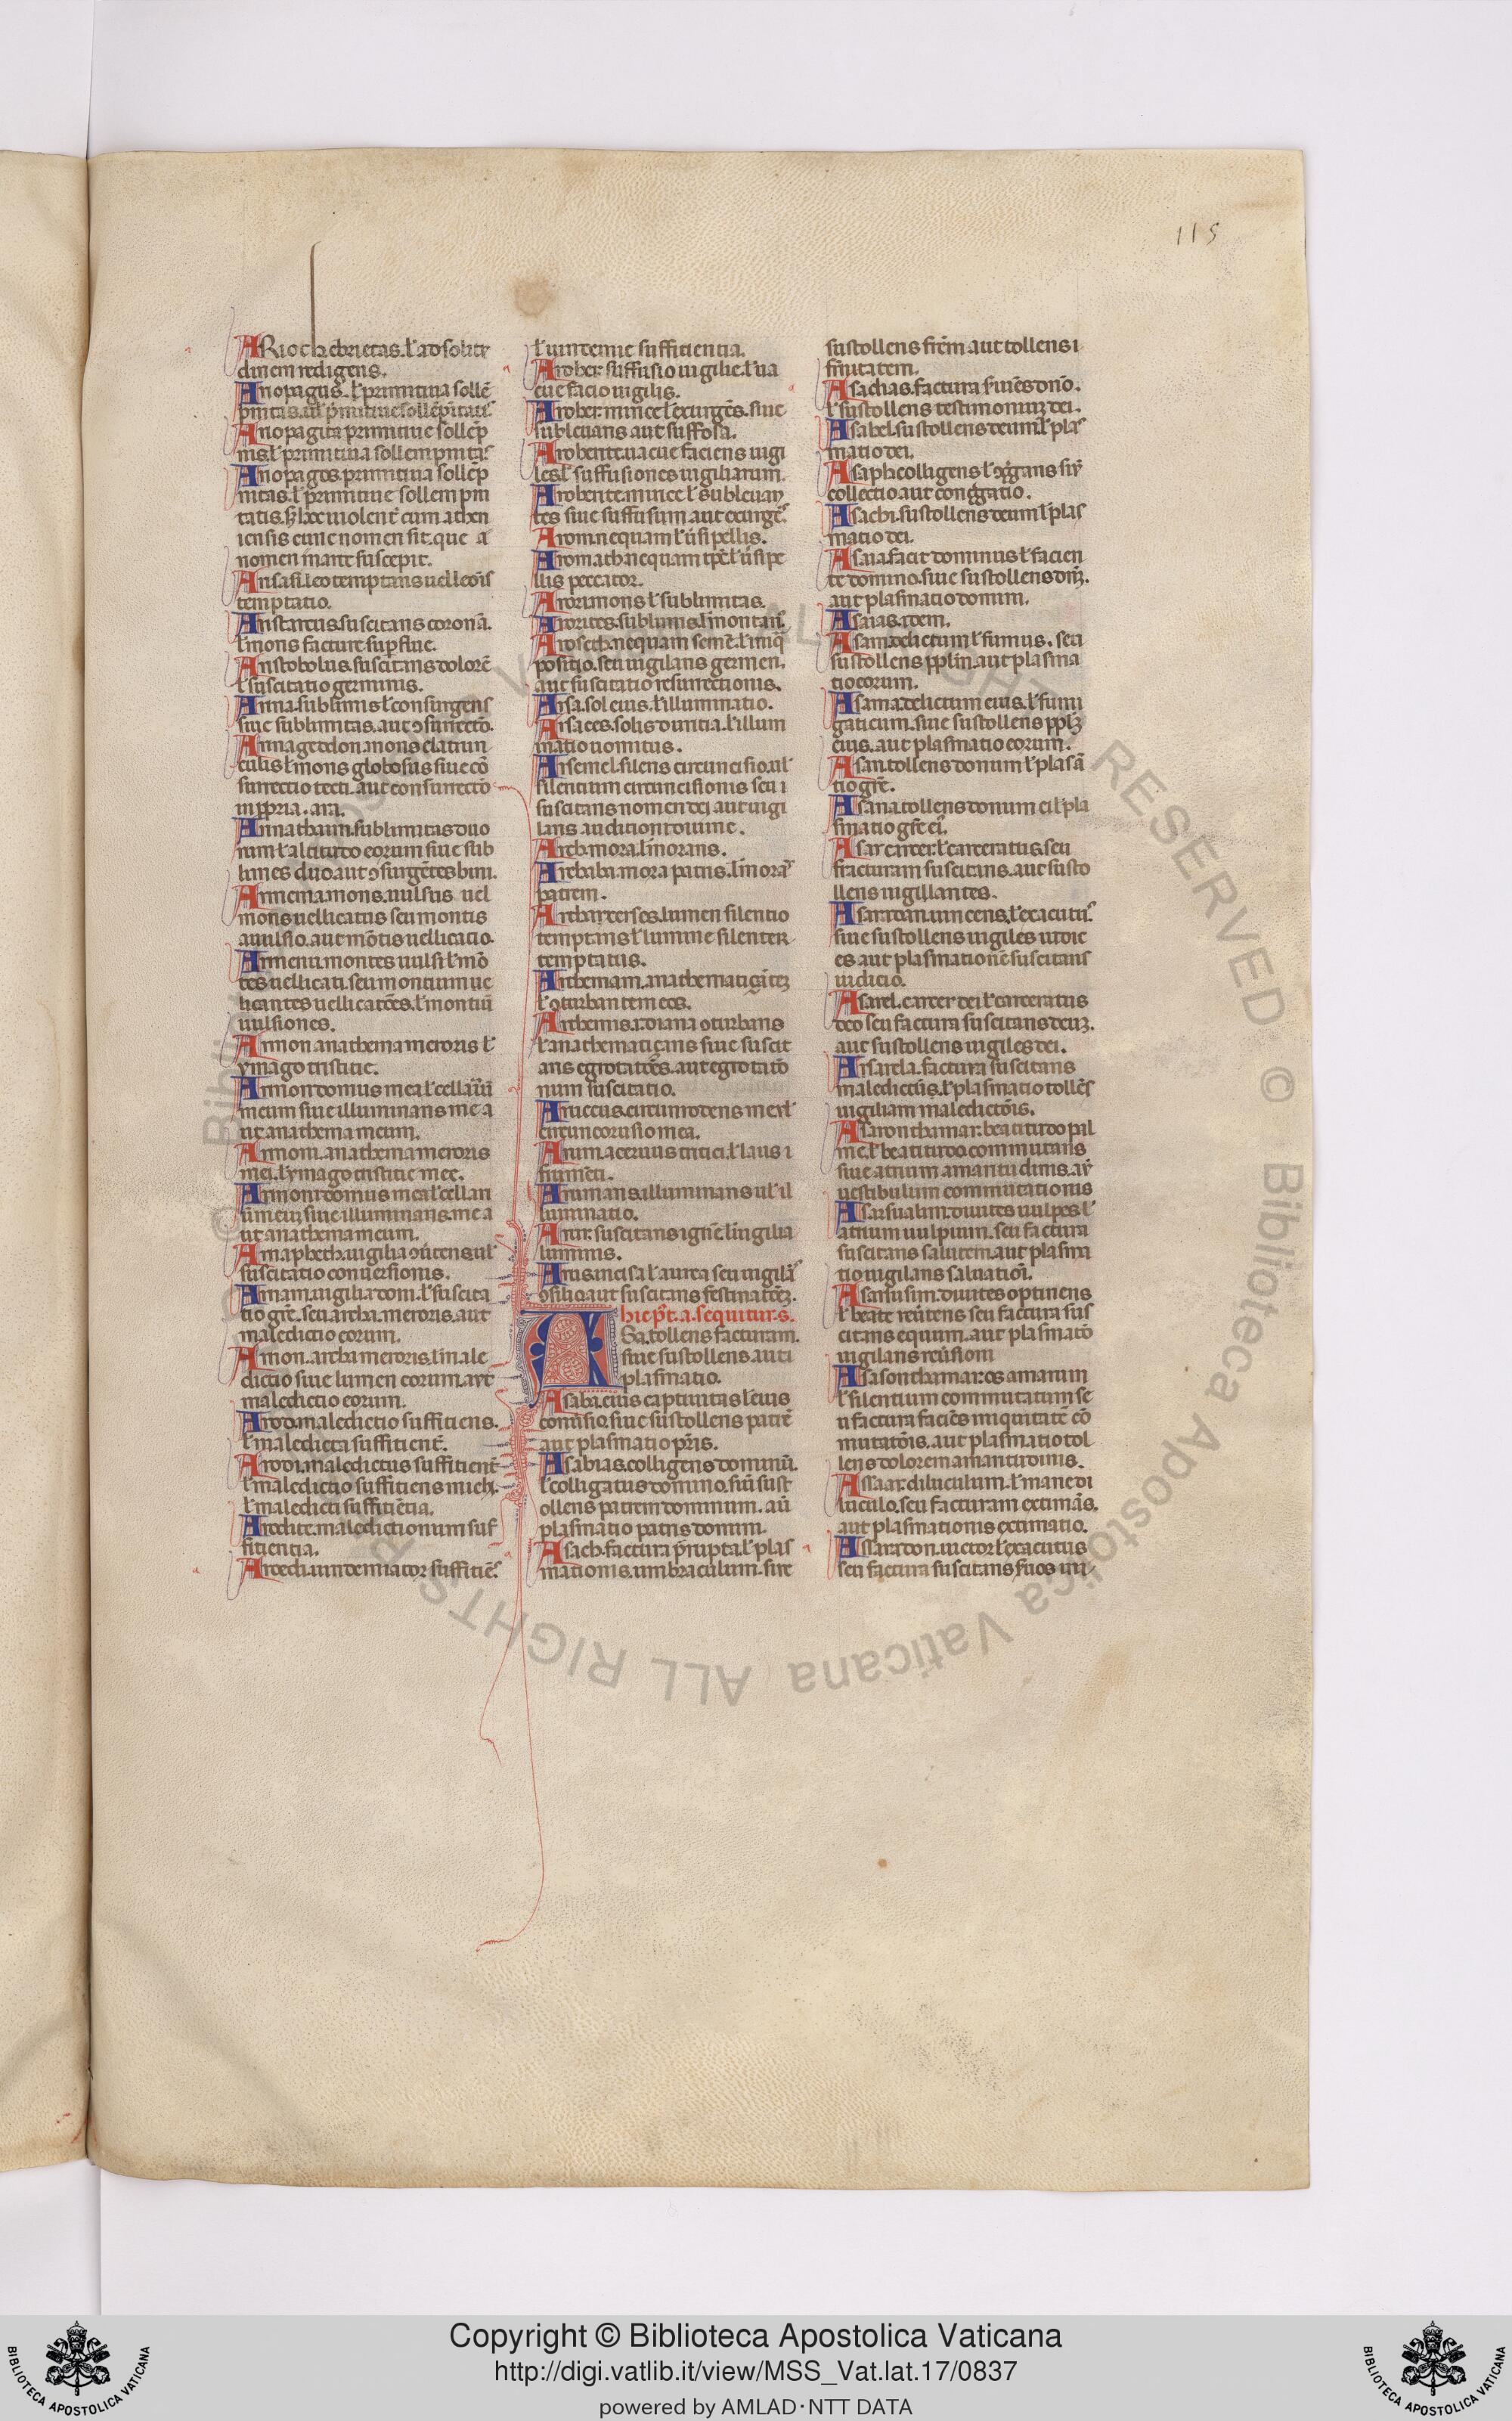 115
ARioch ebrietas. ł ad solitu
dinem redigens.
Ariopagus. ł primitiua sollē
Ariopagita primitiue sollēp
nis. ł primitiua sollempnitaˢ
Ariopagos. primitiua sollēp
nitas. ł primitiue sollempni
tatis. ꝫ hec uiolent̄ cum athen
iensis curie nomen sit. que a
nomen marte suscepit.
Arisasi. leo temptans uel leoīs
temptatio.
Aristarcus. suscitans coronā.
ł mons facture suꝑflue.
Aristobolus. suscitans dolorē
ł suscitatio germinis.
Arma. sublimis ł consurgens
siue sublimitas. aut ꝯsurrectō.
Armagedon. mons e latrun
culis ł mons globosus siue cō
surrectio tecti. aut consurrectō
Armathaim. sublimitas duo
rum ł altitudo eorum siue sub
limes duo aut ꝯsurgētes bini.
Armenia. mons. uulsus uel
mons uellicatus seu montis
auulsio. aut mōtis uellicatio.
Armenii. montes uulsi ł mō
tes uellicati. seu montium ue
llicantes uellicatōes. ł montiū
uulsiones.
Armon anathema meroris ł
ymago tristitie.
Armon domus mea ł
meum siue illuminans me a
ut anathema meum.
Armoni. anathema meroris
mei. ł ymago tristitie mee.
Armoni domus mea ł cellari
ū meuꝫ siue illuminans. me a
ut anathema meum.
Arnapheth. uigilia ꝯuertens. uł
suscitatio conuersionis.
Arnam. uigilia doni. ł suscita
tio gr̄e. seu archa. meroris. aut
maledictio eorum.
Arnon. archa meroris. ł male
dictio siue lumen eorum. aut
maledictio eorum.
Arod. maledictio sufficiens.
ł maledicta sufficient̄.
Arodi. maledictus sufficient̄
ł maledictio sufficiens michi.
ł maledicti sufficiētia.
Arodite. maledictionum suf
ficientia.
Aroedi. uindemiator sufficiēˢ
ł uindemie sufficientia.
Aroer. suffusio uigilie. ł ua
cue facio uigilis.
sublevans aut suffosa.
les ł suffusiones uigiliarum.
tes siue suffusum aut exurgēˢ
Arom. nequam ł uīsi pellis.
llis peccator.
Arori. mons ł sublimitas.
Arorites. sublimis. ł montanˢ
Aroseth. nequam semē. ł iniqͣ
positio. seu uigilans germen.
aut suscitatio resurrectionis.
Arsa. sol eius. ł illuminatio.
Arsaces. solis duritia. ł illum
inatio uomitus.
Arsemel. silens circuncisio. uł
silentium circuncisionis seu i
suscitans nomen dei aut uigi
lans auditioni diuine.
Arth. mora. ł morans.
Arthaba. mora patris. ł moraˢ
patrem.
Artharxerses. lumen silentio
temptans ł lumine silenter
temptatus.
Arthemam. anathematiçātēꝫ
ł ꝯturbantem eos.
Arthemis. i. diana ꝯturbans
ł anathematiçans siue suscit
ans egrotatōes. aut egrotatō
num suscitatio.
circuncorusio mea.
Arum. aceruus tritici. ł laus i
frumēti.
Arumans. illuminans uł il
luminatio.
Arur. suscitans ignē. ł uigilia
luminis.
Arus. incisa ł aurea seu uigilāˢ
ꝯsilio. aut suscitans festinatōeꝫ.
hic pͧt. a. sequitur. s.
ASa. tollens facturam.
siue sustollens. aut i
plasmatio.
Asaba. eius captiuitas ł eius
conūsio. siue sustollens patrē
aut plasmatio pr̄is.
Asabias. colligens dominū.
ł colligatus domino. siū sust
ollens patrem dominum. aū
plasmatio patris domini.
Asach. factura p̄rupta. ł plas
mationis. umbraculum. siue
sustollens fr̄em. aut tollens i
fr̄nitatem.
ł sustollens testimoniuꝫ dei.
Asahel. sustollens deum ł plaˢ
matio dei.
Asaph. colligens ł ꝯg̃gans siū
collectio aut cong̃gatio.
Asahi. sustollens deum ł plas
matio dei.
Asaia. facit dominus ł facien
te domino. siue sustollens dn̄ꝫ.
aut plasmatio domini.
Asaias. idem.
Asam. delictum ł fumus. seu
sustollens pplm̄. aut plasma
tio eorum.
Asama. delictum eius. ł fumi
gaticum. siue sustollens pplꝫ
eius. aut plasmatio eorum.
Asan. tollens donum ł plasā
tio gr̄e.
Asana. tollens donum ei ł pla
smatio gr̄e ei.
Asar. carcer. ł carceratus. seu
fracturam suscitans. aut susto
llens uigillantes.
Asaradan. uincens. ł exacutuˢ.
siue sustollens uigiles iudic
es. aut plasmationē suscitans
iudicio.
Asarel. carcer dei ł carceratus
deo seu factura suscitans deuꝫ.
aut sustollens uigiles dei.
Arsarela. factura suscitans
maledictūs. ł plasmatio tollēs
uigiliam maledictōis.
Asaronthamar. beatitudo pal
me. ł beatitudo commutans
siue atrium amaritudinis. aū
uestibulum commutationis
Asarsualim. diuites uulpes ł
atrium uulpium. seu factura
suscitans salutem. aut plasma
tio uigilans saluationi.
Asarsusim. diuites optinens
ł beate reūtens seu factura sus
citans equum. aut plasmatō
uigilans reūsioni
Asasonthamar. os amarum
ł silentium commutatum se
u factura faciēs iniquitatē cō
mutatōis. aut plasmatio tol
lens dolorem amaritudinis.
Assaar. diluculum. ł mane di
luculo. seu facturam extimās.
aut plasmationis extimatio.
Assaradon. uictor ł exacutus
seu factura suscitans suos iu
© Biblioteca Apostolica Vaticana ALL RIGHTS RESERVED
Copyright © Biblioteca Apostolica Vaticana
http://digi.vatlib.it/view/MSS_Vat.lat.17/0837
powered by AMLAD·NTT DATA
BIBLIOTECA APOSTOLICA VATICANA
BIBLIOTECA APOSTOLICA VATICANA